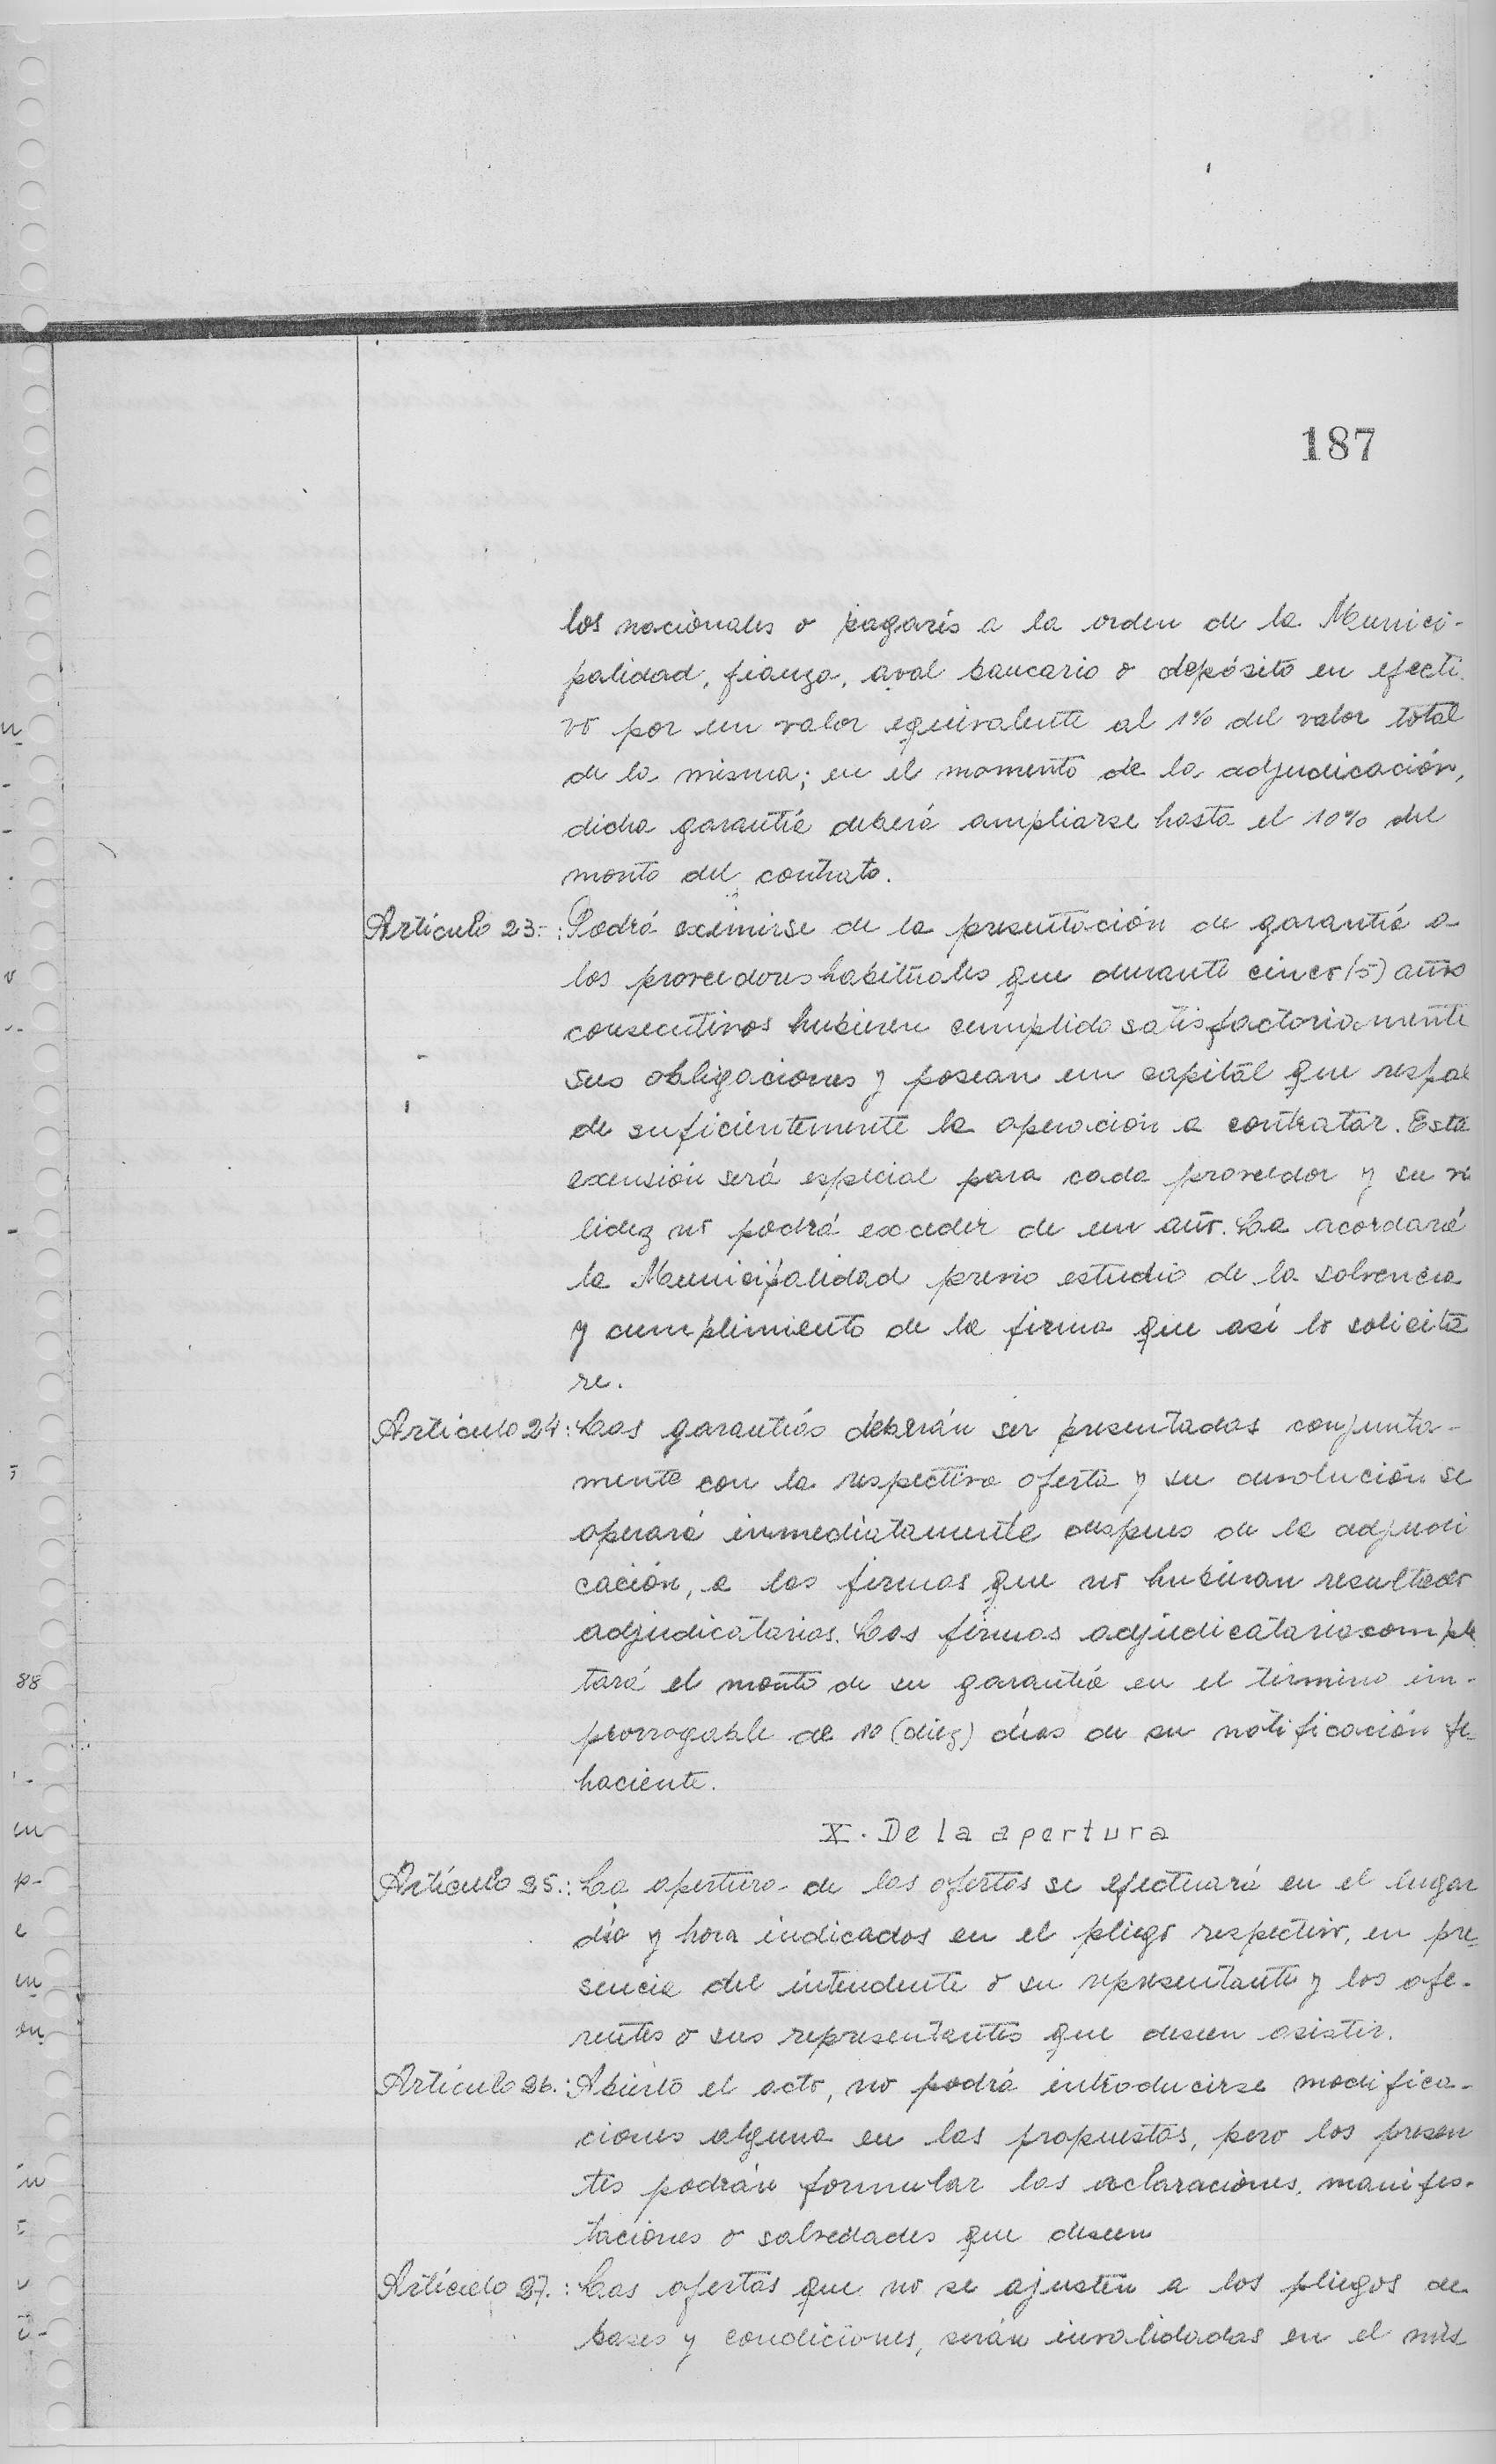 187
los nacionales o pagarés a la orden de la Munici-
palidad, fianza, aval bancario o depósito en efecti-
vo por un valor equivalente al 1% del valor total
de la misma; en el momento de la adjudicación,
dicha garantía deberá ampliarse hasta el 10% del
monto del contrato.
Artículo 23-: Podrá eximirse de la presentación de garantía a
los proveedores habituales que durante cinco (5) años
consecutivos hubieren cumplido satisfactoriamente
sus obligaciones y posean un capital que respal
de suficientemente la operación a contratar. Esta
exensión será especial para cada proveedor y su va
lidez no podrá exceder de un año. La acordará
la Municipalidad previo estudio de la solvencia
y cumplimiento de la firma que así lo solicita
re.
Artículo 24: Las garantías deberán ser presentadas conjunta-
mente con la respectiva oferta y su devolución se
operará inmediatamente despues de la adjudi
cación, a las firmas que no hubieran resultado
adjudicatarias. Las firmas adjudicatarias comple
tará el monto de su garantía en el término im-
prorrogable de 10 (diez) días de su notificación fe-
haciente.
X. De la apertura
Artículo 25.: La apertura de las ofertas se efectuará en el lugar
día y hora indicados en el pliego respectivo, en pre-
sencia del intendente o su representante y los ofe-
rentes o sus representantes que deseen asistir.
Artículo 26.: Abierto el acto, no podrá introducirse modifica-
ciones alguna en las propuestas, pero los presen
tes podrán formular las aclaraciones, manifes-
taciones o salvedades que deseen
Artículo 27.: Las ofertas que no se ajusten a los pliegos de
bases y condiciones, serán invalidadas en el mis
88
en
p-
e
en
on
in